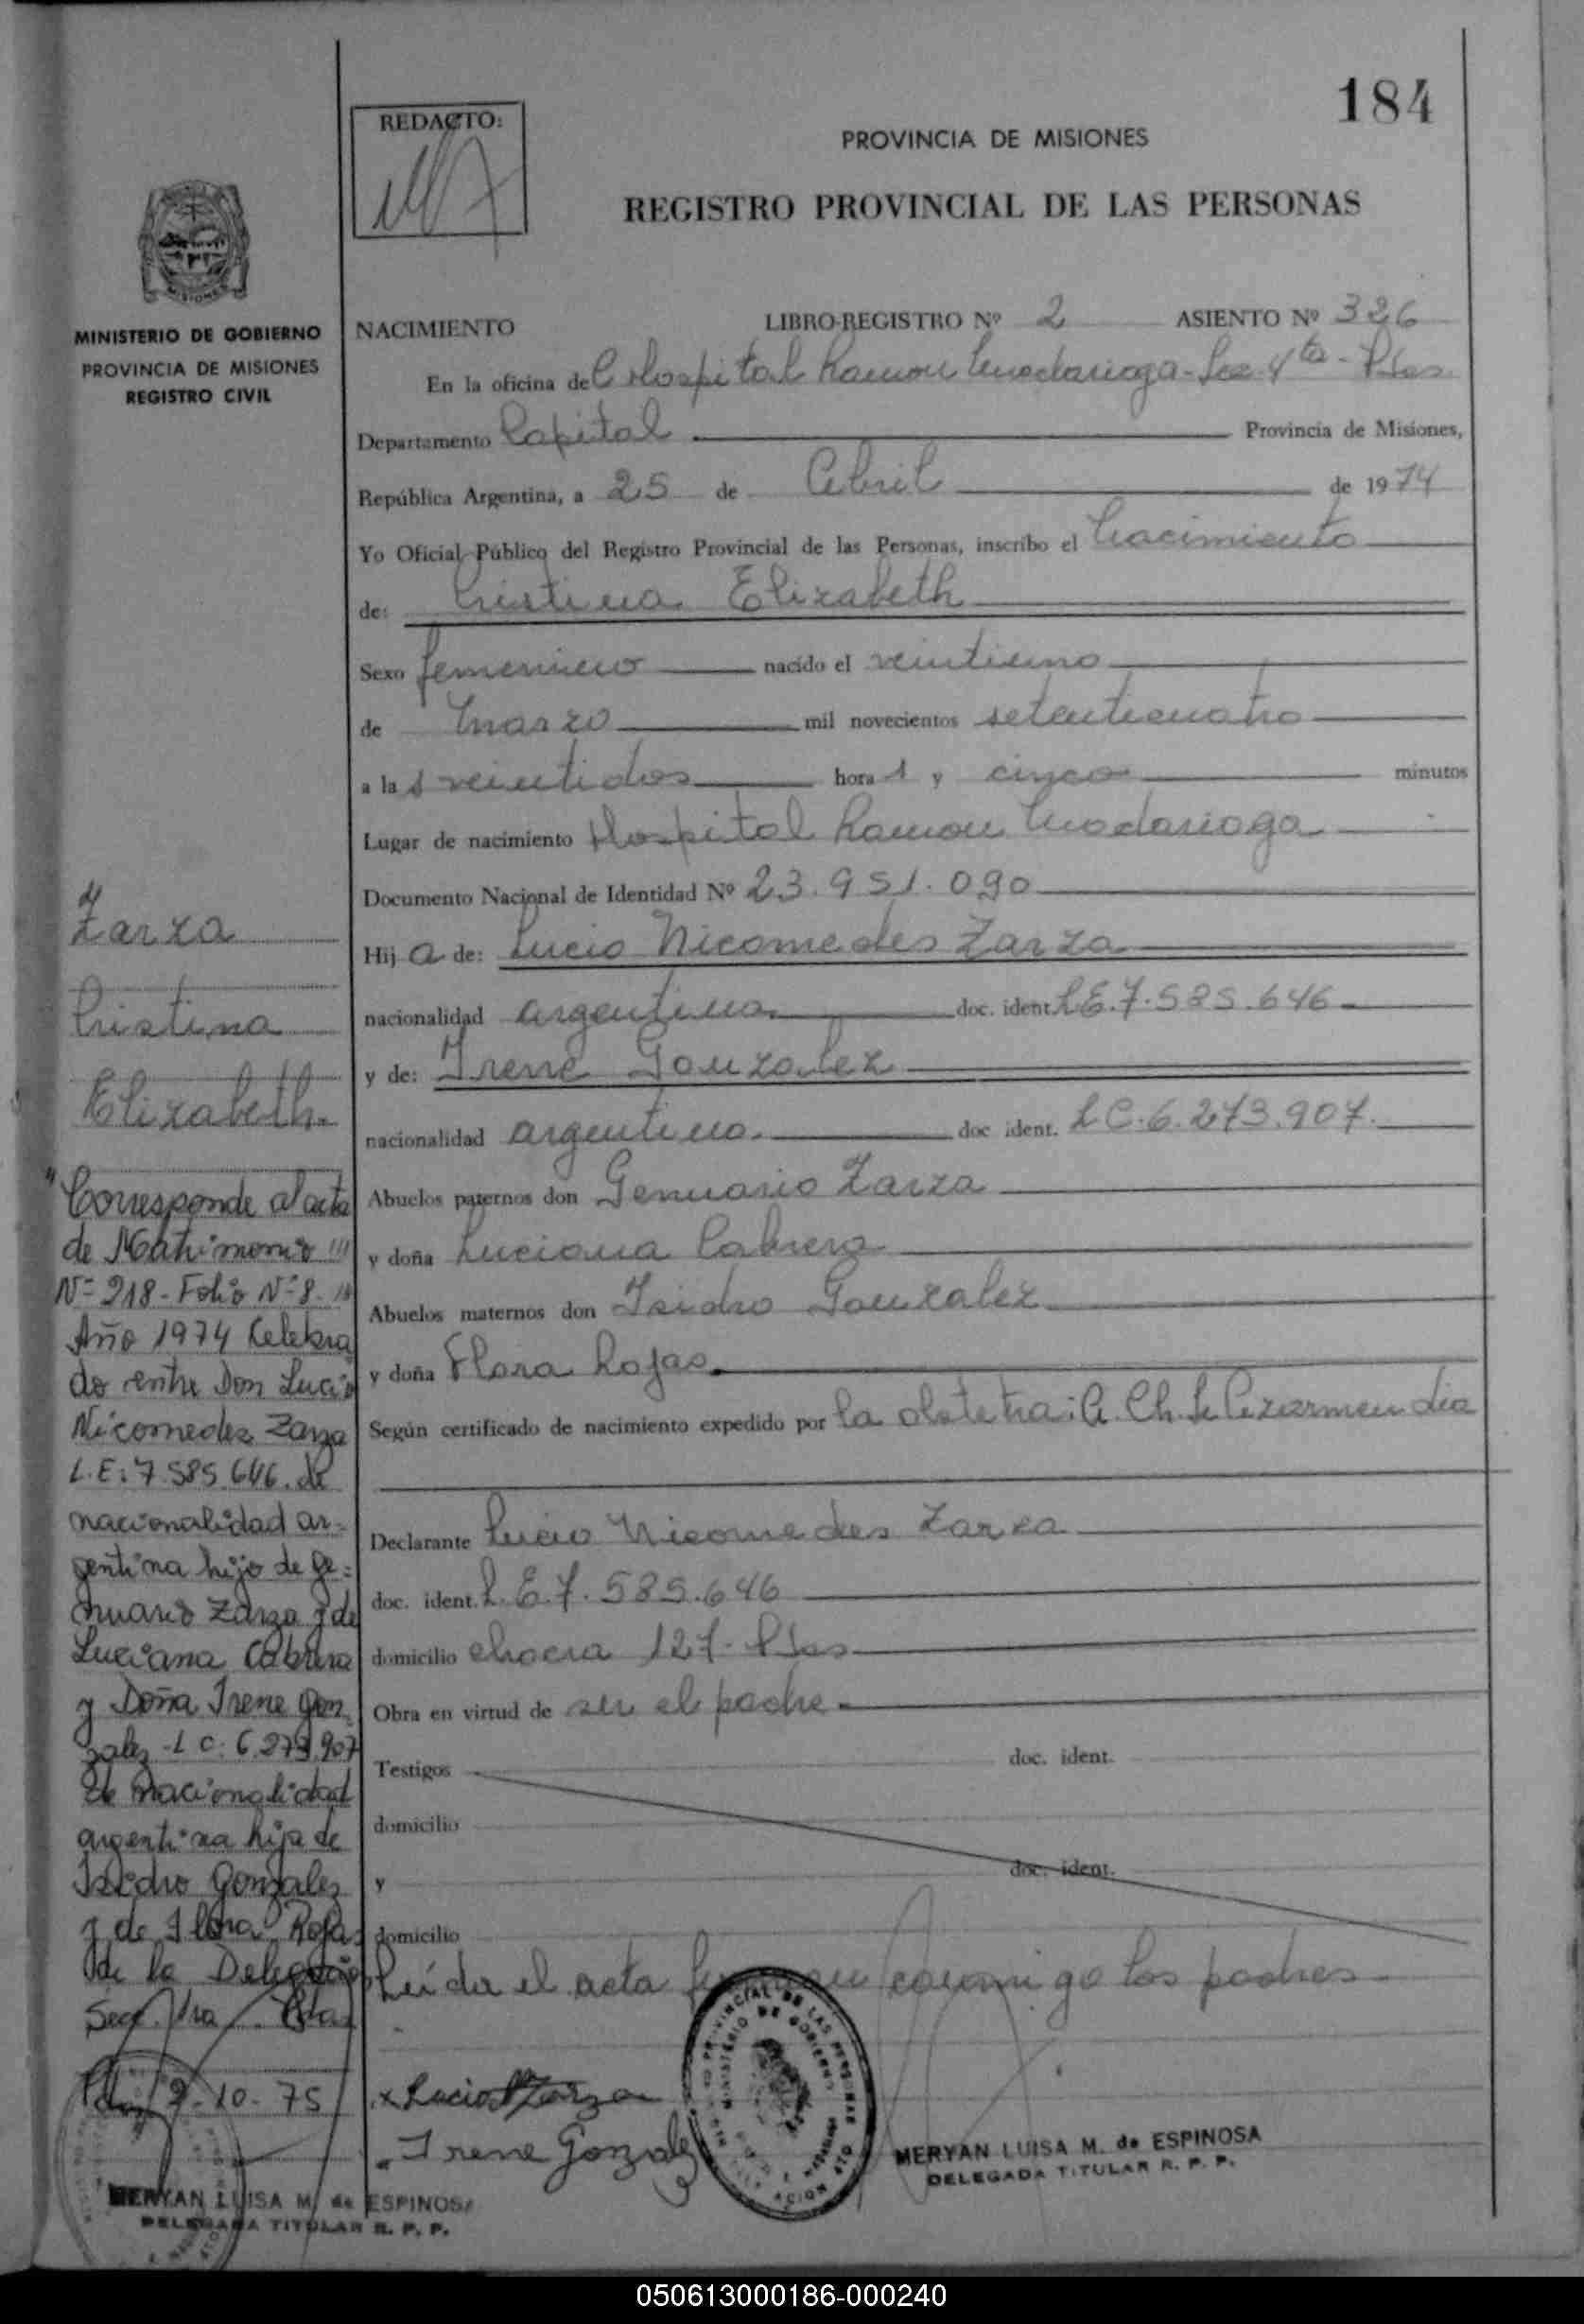 184
REDACTO:
PROVINCIA DE MISIONES
REGISTRO PROVINCIAL DE LAS PERSONAS
MISIONES
MINISTERIO DE GOBIERNO
PROVINCIA DE MISIONES
REGISTRO CIVIL
NACIMIENTO LIBRO-REGISTRO Nº 2 ASIENTO Nº 326
En la oficina del Hospital Ramon Madariaga - Sec. 4ta - Pdas
Departamento Capital Provincia de Misiones,
República Argentina, a 25 de Abril de 1974
Yo Oficial Público del Registro Provincial de las Personas, inscribo el Nacimiento
de: Cristina Elizabeth
Sexo femenino nacido el veintiuno
de Marzo mil novecientos setenticuatro
a las veintidos horas y cinco minutos
Lugar de nacimiento Hospital Ramon Madariaga
Documento Nacional de Identidad Nº 23.951.090
Hija de: Lucio Nicomedes Zarza
nacionalidad argentina doc. ident L.E. 7.585.646
y de: Irene Gonzalez
nacionalidad argentina. doc ident. L.C. 6.273.907.
Abuelos paternos don Genuario Zarza
y doña Luciana Cabrera
Abuelos maternos don Isidro Gonzalez
y doña Flora Rojas.
Según certificado de nacimiento expedido por la obstetra: A. Ch. de
Declarante Lucio Nicomedes Zarza
doc. ident. L.E. 7.585.646
domicilio chacra 127 - Pdas
Obra en virtud de ser el padre
Testigos doc. ident.
domicilio
y doc. ident.
domicilio
Leída el acta firman conmigo los padres
x Lucio N Zarza
Irene Gonzalez
MERYAN LUISA M. de ESPINOSA
DELEGADA TITULAR R. P. P.
Zarza
Cristina
Elizabeth.
"Corresponde al acta
de Matrimonio
Nº 218 - Folio Nº 8.
Año 1974 Celebra
do entre Don Lucio
Nicomedez Zarza
L.E: 7.585.646. de
nacionalidad ar-
gentina hijo de Ge=
nuario Zarza y de
Luciana Cabrera
y Doña Irene Gon
zalez - L C: 6.273.907
de nacionalidad
argentina hija de
Isidro Gonzalez
y de Flora Rojas
de la Delegación
Secc. 1ra Pdas
Pdas, 9-10-75
MERYAN LUISA M. de ESPINOSA
DELEGADA TITULAR R. P. P.
050613000186-000240